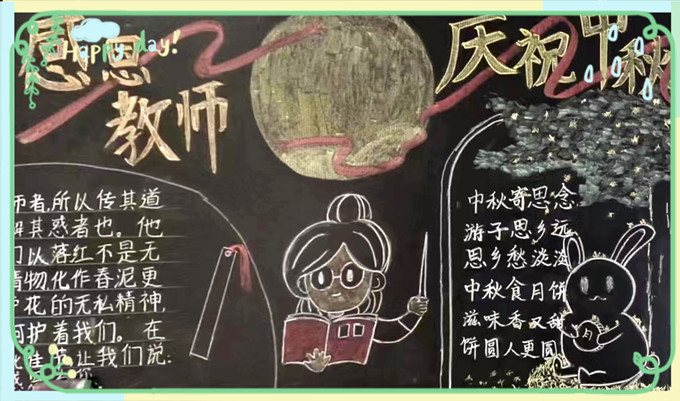 Happy day!
感恩
教师
庆祝中秋
师者,所以传其道
解其惑者也。他
们以落红不是无
情物化作春泥更
护花的无私精神,
呵护着我们。在
佳节让我们说:
你
中秋寄思念,
游子思乡远
思乡愁
中秋食月饼
滋味香又甜
饼圆人更圆
月